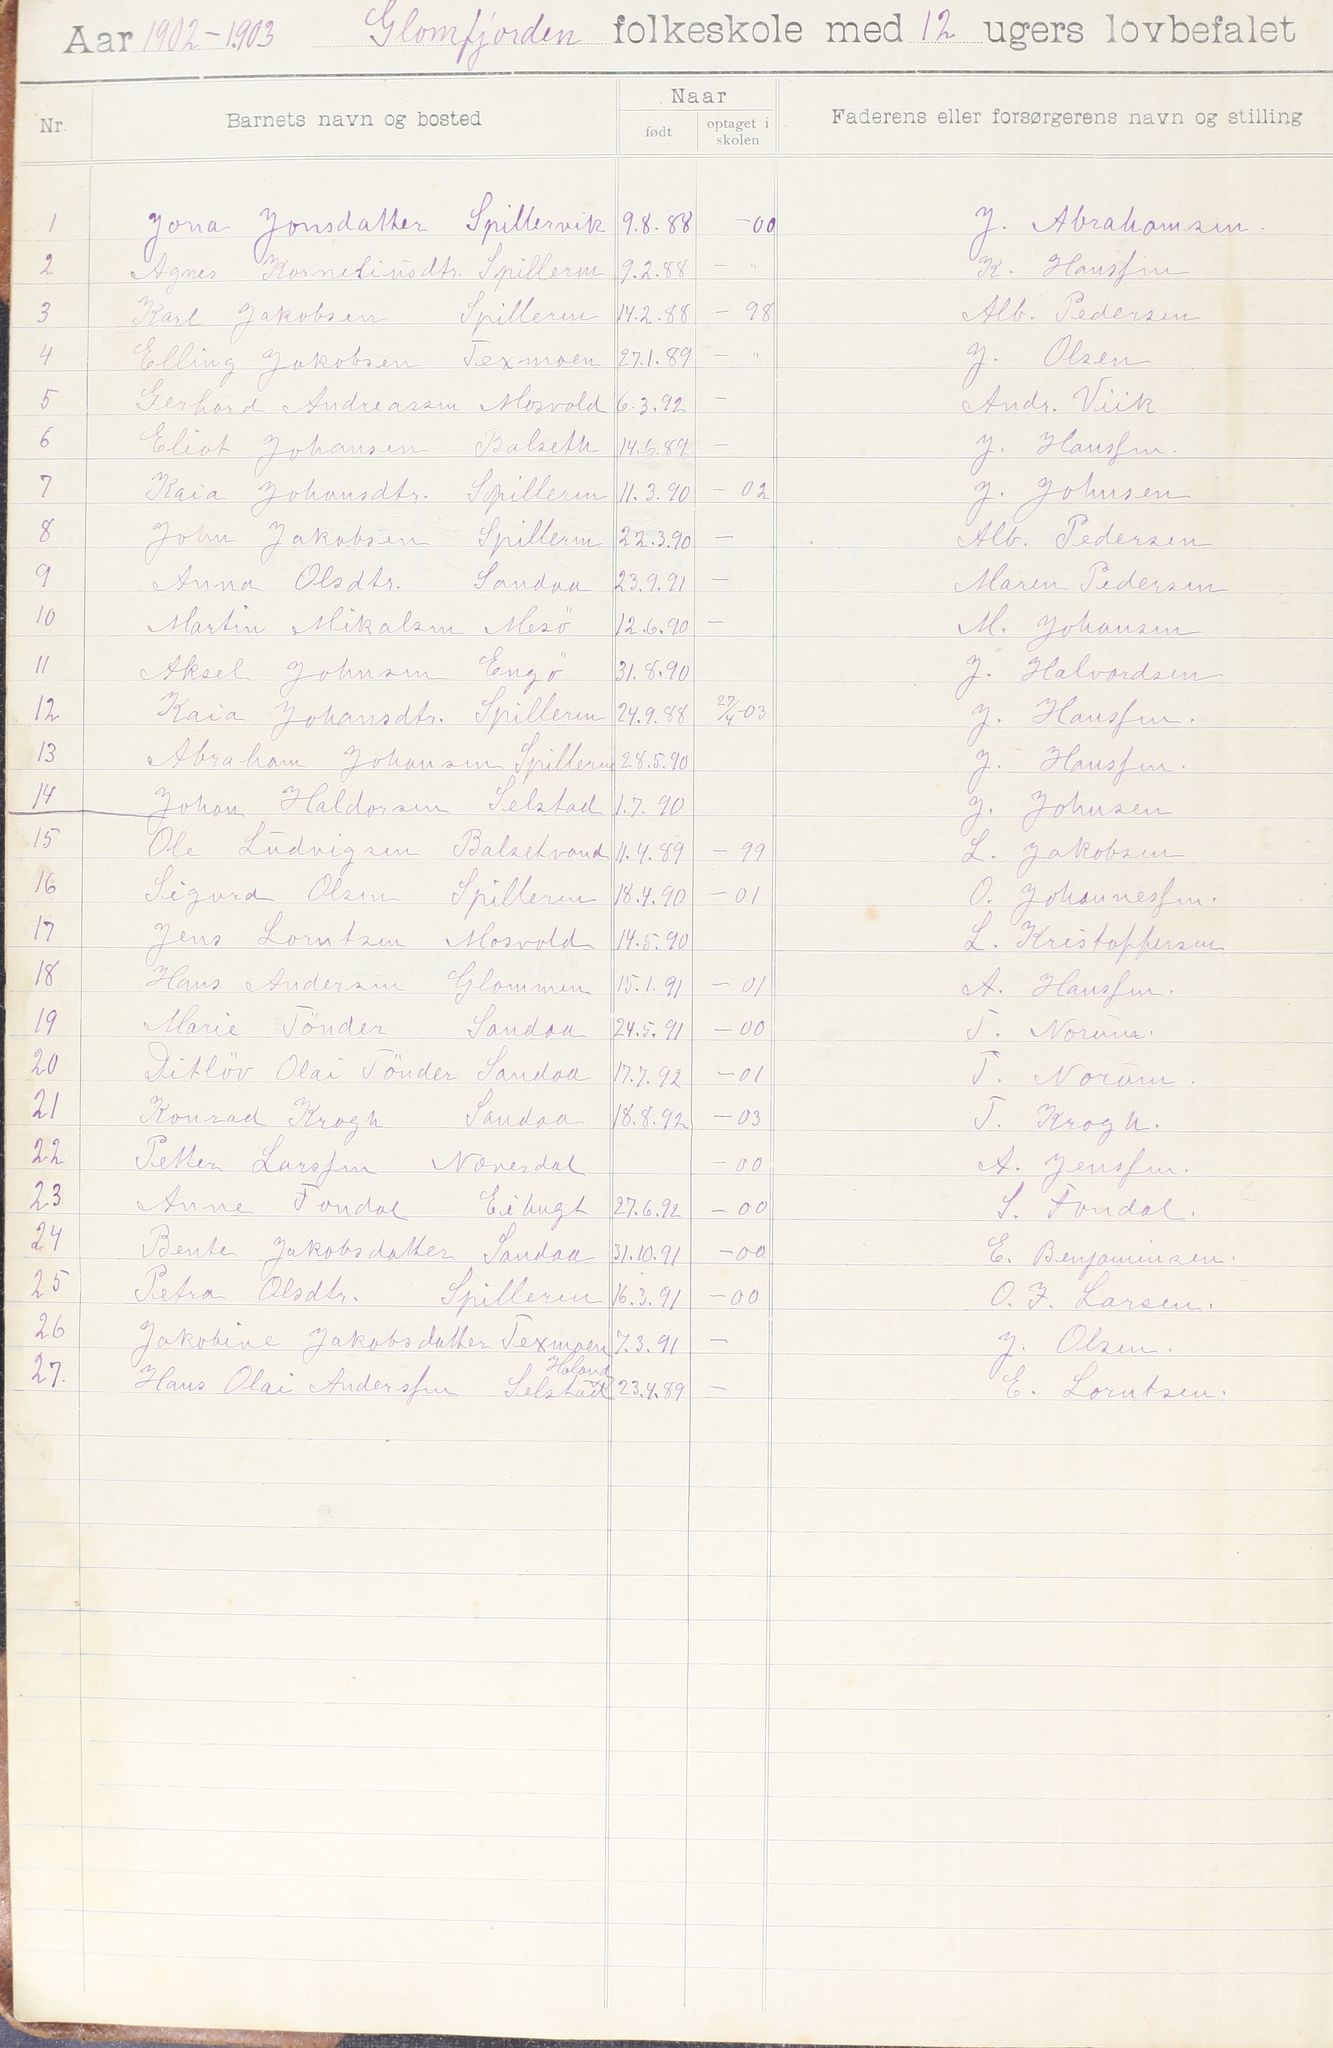 Aar 1902-1903 Glomfjorden folkeskole med 12 ugers lovbefalet
Nr. Barnets navn og bosted Naar Faderens eller forsørgerens navn og stilling
født optaget i skolen
1 Jona Jonsdatter Spillervik 9.8.88 -00 J. Abrahamsen.
2 Agnes Kornelinsdtr. Spilleren 9.2.88 - " K. Hanssen
3 Karl Jakobsen Spilleren 14.2.88 - 98 Alb. Pedersen
4 Elling Jakobsen Texmoen 27.1.89 - " J. Olsen
5 Gerhard Andreassen Mosvold 6.3.92 - Andr. Viik
6 Eliot Johansen Balseth 14.6.89 - J. Hanssen.
7 Kaia Johansdtr. Spilleren 11.3.90 - 02 J. Johnsen
8 John Jakobsen Spilleren 22.3.90 - Alb. Pedersen
9 Anna Olsdtr. Sandaa 23.9.91 - Maren Pedersen
10 Martin Mikalsen Mesö 12.6.90 - M. Johansen
11 Aksel Johnsen Engö 31.8.90 J. Halvordsen
12 Kaia Johansdtr. Spilleren 24.9.88 27/4-03 J. Hanssen.
13 Abraham Johansen Spilleren 28.5.90 J. Hanssen.
14 Johan Haldorsen Selstad 1.7.90 J. Johnsen
15 Ole Ludvigsen Balsetvand 11.4.89 - 99 L. Jakobsen
16 Sigurd Olsen Spilleren 18.4.90 - 01 O. Johannessen.
17 Jens Lorntsen Mosvold 14.5.90 L. Kristoffersen
18 Hans Andersen Glommen 15.1.91 - 01 A. Hanssen.
19 Marie Tönder Sandaa 24.5.91 - 00 T. Norum.
20 Ditlöv Olai Tönder Sandaa 17.7.92 -01 T. Norum.
21 Konrad Krogh Sandaa 18.8.92 - 03 T. Krogh.
22 Petter Larssen Næverdal - 00 A. Jenssen.
23 Anne Fondal Eibugt 27.6.92 - 00 S. Fondal.
24 Bente Jakobsdatter Sandaa 31.10.91 -00 E. Benjaminsen.
25 Petra Olsdtr. Spilleren 16.3.91 -00 O. J. Larsen.
26 Jakobine Jakobsdatter Texmoen 7.3.91 - J. Olsen.
27. Hans Olai Anderssen Selstad Haland 23.4.89 - E. Lorntsen.